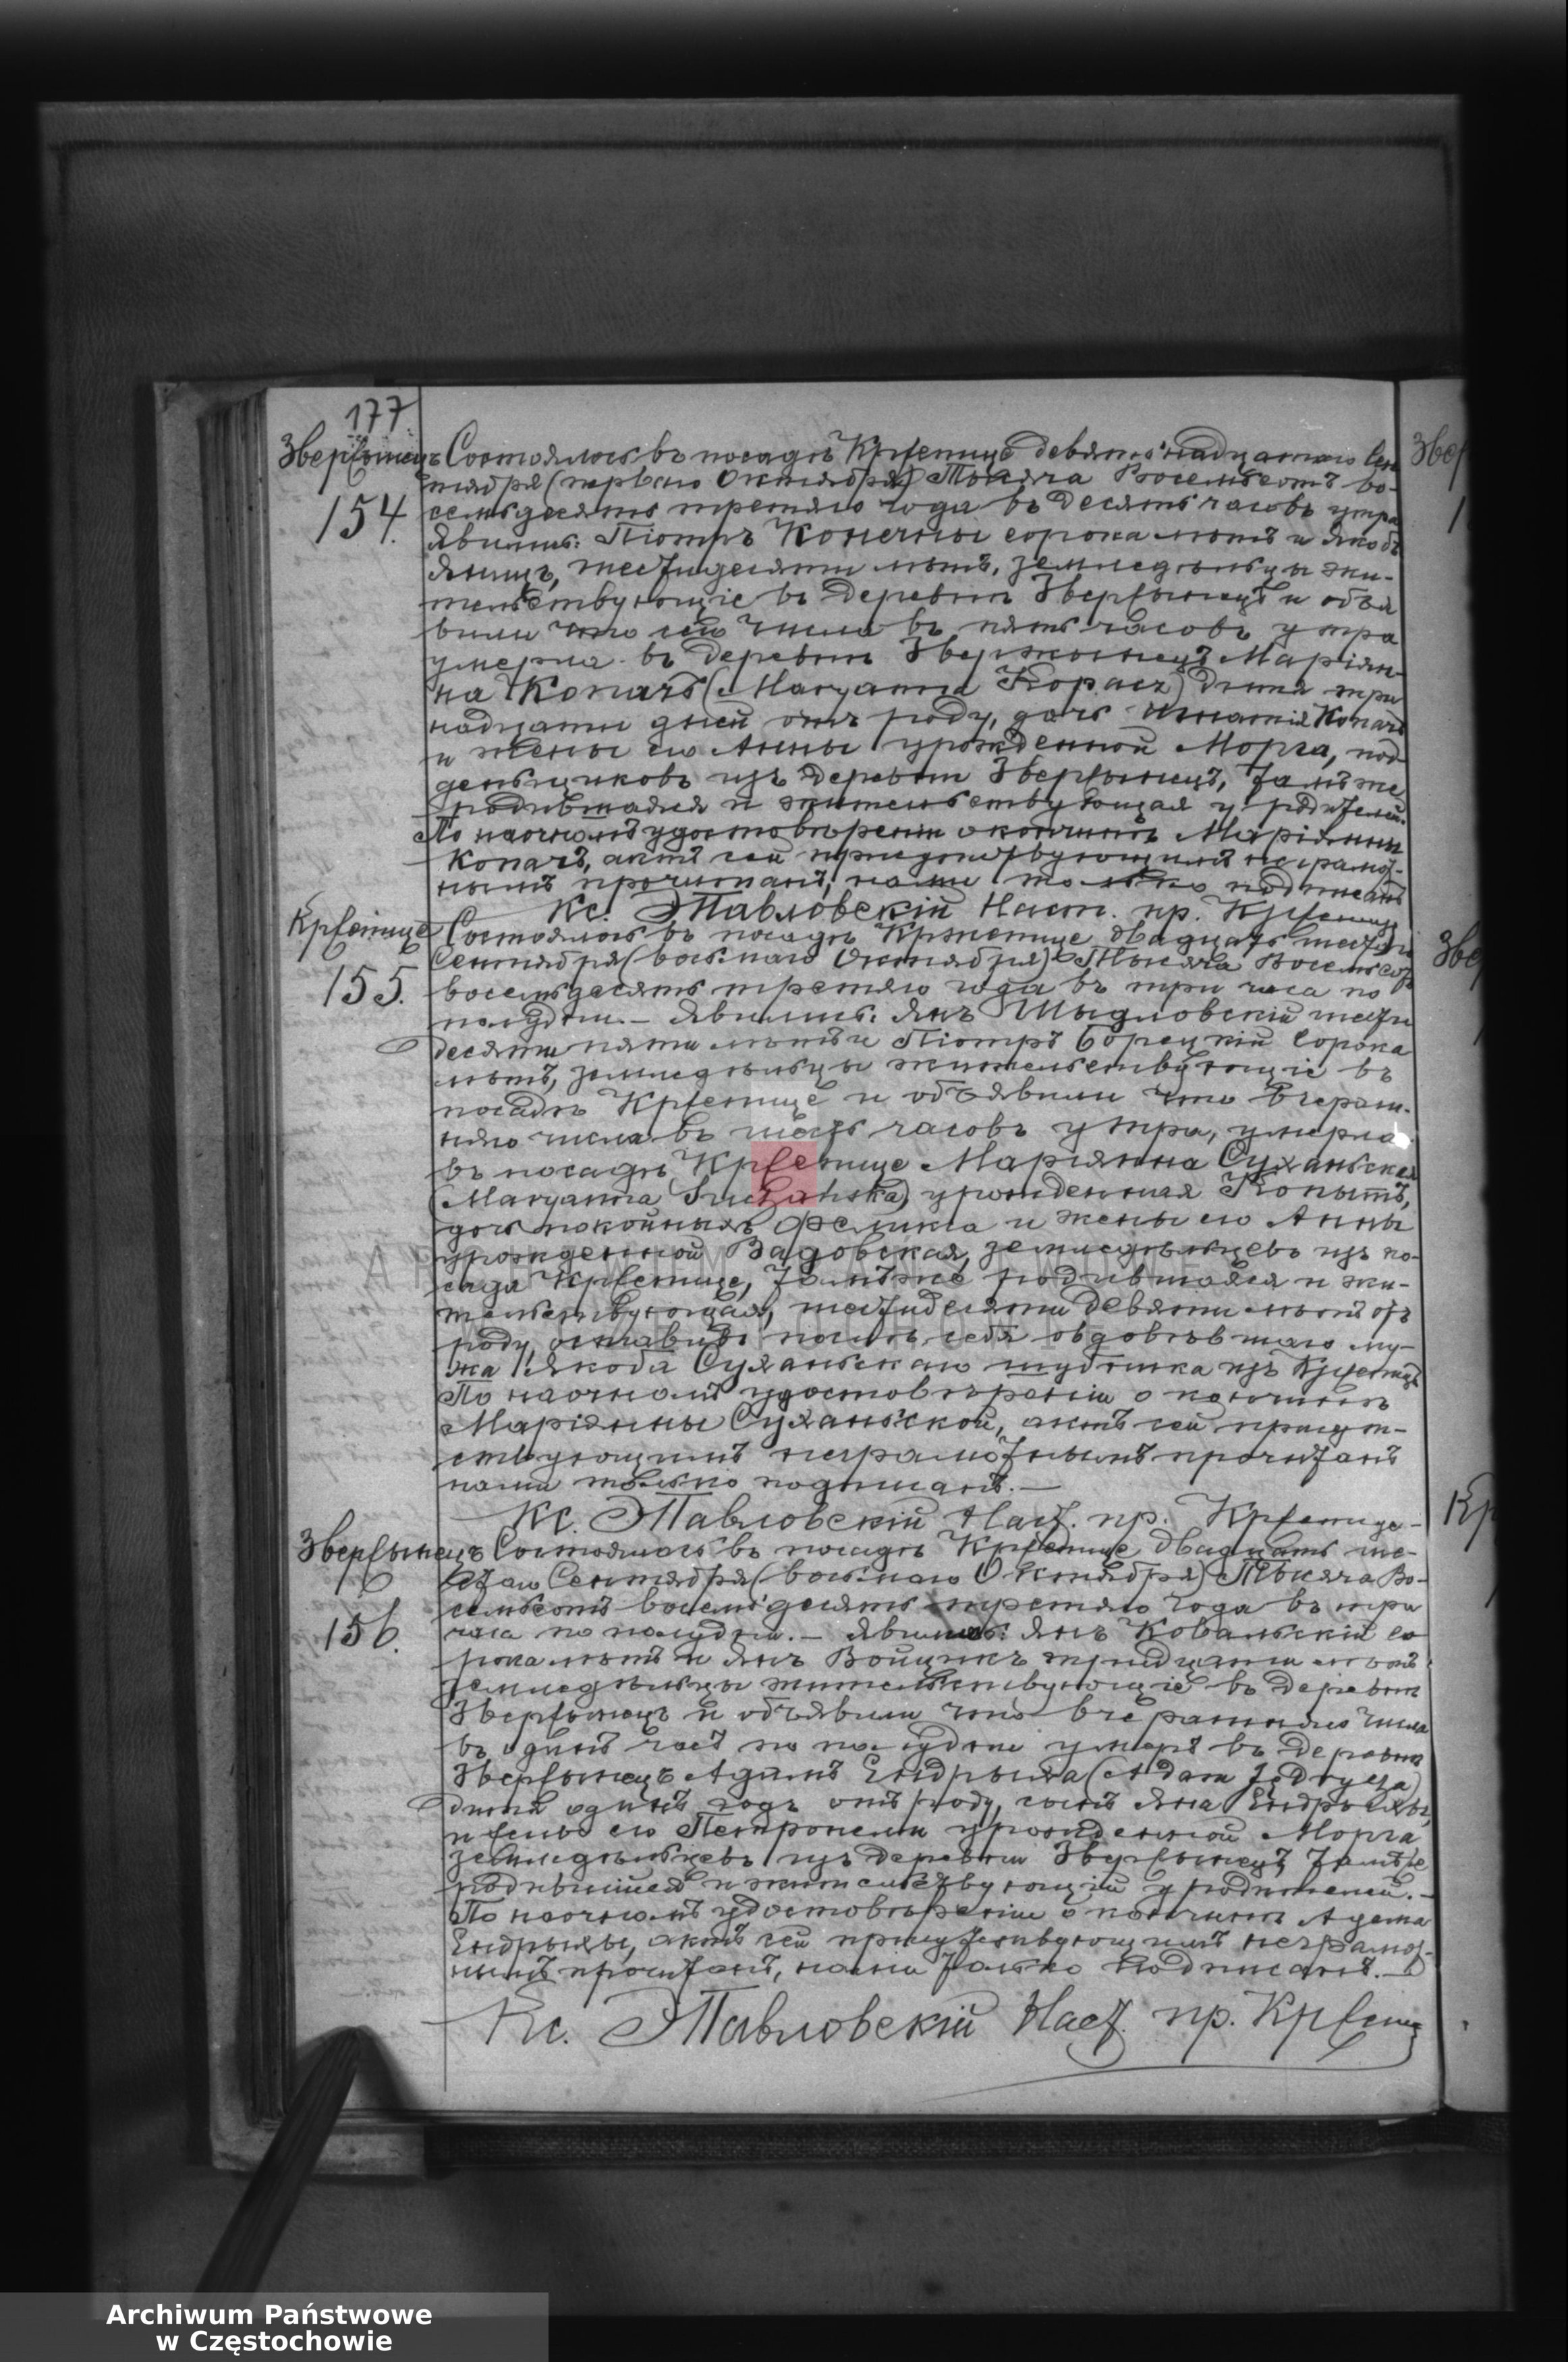 177
Звержинецъ Состоялось въ посадѣ Крженице девятнадцатаго Сен
154. тября (перваго Октября) Тысяча Восемьсотъ во-
семьдесятъ третяго года въ десять часовъ утра
Явились: Піотръ Конечны сорока лѣтъ и Якобъ
лѣтъ, земледѣльцы жи-
тельствующіе въ деревни Звержинецъ и объя
вили что сего числа въ пять часовъ утра
умерла въ деревни Звержынецъ Маріян-
на Копачъ (Maryanna Kopacz) дитя три
надцати дней отъ роду, дочь Копачъ
и жены его Анны урожденной Морга, под
денщиковъ изъ деревни Звержынецъ, тамъ же
родившаяся и жительствующая у родителей.
По наочномъ удостовѣреніи о кончинѣ Маріянны
Копачъ, актъ сей присутствующимъ неграмот-
нымъ прочитанъ, нами только подписанъ
Кс. Э Павловскій Наст. пр. Крженице
Крженице Состоялось въ посадѣ Крженице двадцать шестаго
155. Сентября (восьмаго Октября) Тысяча Восемьсотъ
восемьдесятъ третяго года въ три часа по
полудни.— Явились: Янъ Шыдловскій шести
десяти пяти лѣтъ и Піотръ Борецкій сорока
лѣтъ, земледѣльцы жительствующіе въ
посадѣ Крженице и объявили что вчераш-
няго числа въ шесть часовъ утра, умерла
въ посадѣ Крженице Маріянна Суханьская
(Maryanna Suchańska) урожденная Копытъ,
дочь покойныхъ Феликса и жены его Анны
урожденной Вадовская, земледѣльцевъ изъ по-
сада Крженице, тамъ же родившаяся и жи-
тельствующая, шестидесяти девяти лѣтъ отъ
роду, оставивъ послѣ себя овдовѣвшаго му-
жа Якоба Суханьскаго изъ Крженице
По наочномъ удостовѣреніи о кончинѣ
Маріянны Суханьской, актъ сей присут-
ствующимъ неграмотнымъ прочитанъ
нами только подписанъ.—
Кс. Э Павловскій Наст. пр. Крженице-
Звержынецъ Состоялось въ посадѣ Крженице двадцать ше-
156. стаго Сентября (восьмаго Октября) Тысяча Во-
семьсотъ восемьдесятъ третяго года въ три
часа по полудни.— Явились: Янъ Ковальскій со
рока лѣтъ и Янъ Войцикъ тридцати лѣтъ
земледѣльцы жительствующіе въ деревни
Звержынецъ и объявили что вчерашняго числа
въ одинъ часъ по полудни умеръ въ деревни
Звержынецъ Адамъ Ендрыха (Adam Jędrycha)
дитя одинъ годъ отъ роду, сынъ Яна Ендрыхы,
и жены его Петронели урожденной Морга
земледѣльцевъ изъ деревни Звержынецъ, тамъ же
родившійся и жительствующій у родителей.—
По наочномъ удостовѣреніи о кончинѣ Адама
Ендрыхы, актъ сей присутствующимъ неграмот-
нымъ прочитанъ, нами только подписанъ.—
Кс. Э Павловскій Наст. пр. Крженице
Звер
Зве
Кр
ARCHIWUM PAŃSTWOWE
W CZĘSTOCHOWIE
Archiwum Państwowe
w Częstochowie